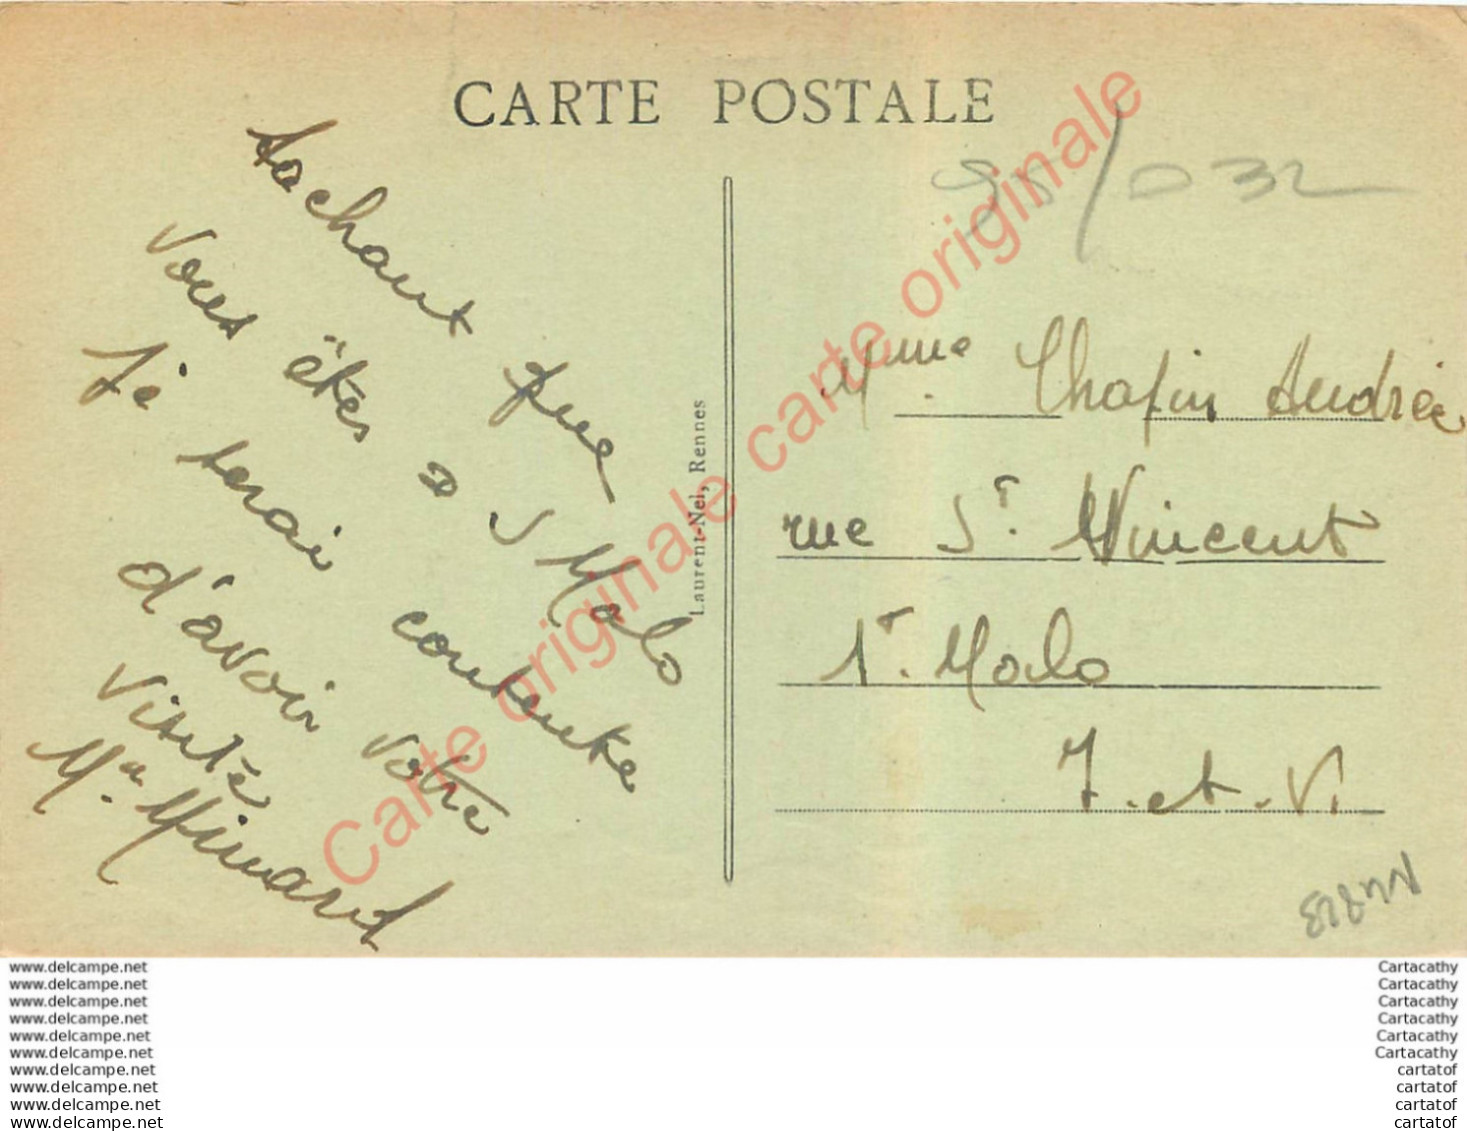 CARTE POSTALE
Sachant que
vous êtes a S Malo
Je serai contente
d'avoir votre
visite
Mme Mimard
Laurent-Nel, Rennes
95/032
Mme. Chapin Andrée
rue St. Vincent
St. Malo
I. et. V.
Carte originale carte originale
www.delcampe.net
www.delcampe.net
www.delcampe.net
www.delcampe.net
www.delcampe.net
www.delcampe.net
www.delcampe.net
www.delcampe.net
www.delcampe.net
www.delcampe.net
Cartacathy
Cartacathy
Cartacathy
Cartacathy
Cartacathy
Cartacathy
cartatof
cartatof
cartatof
cartatof